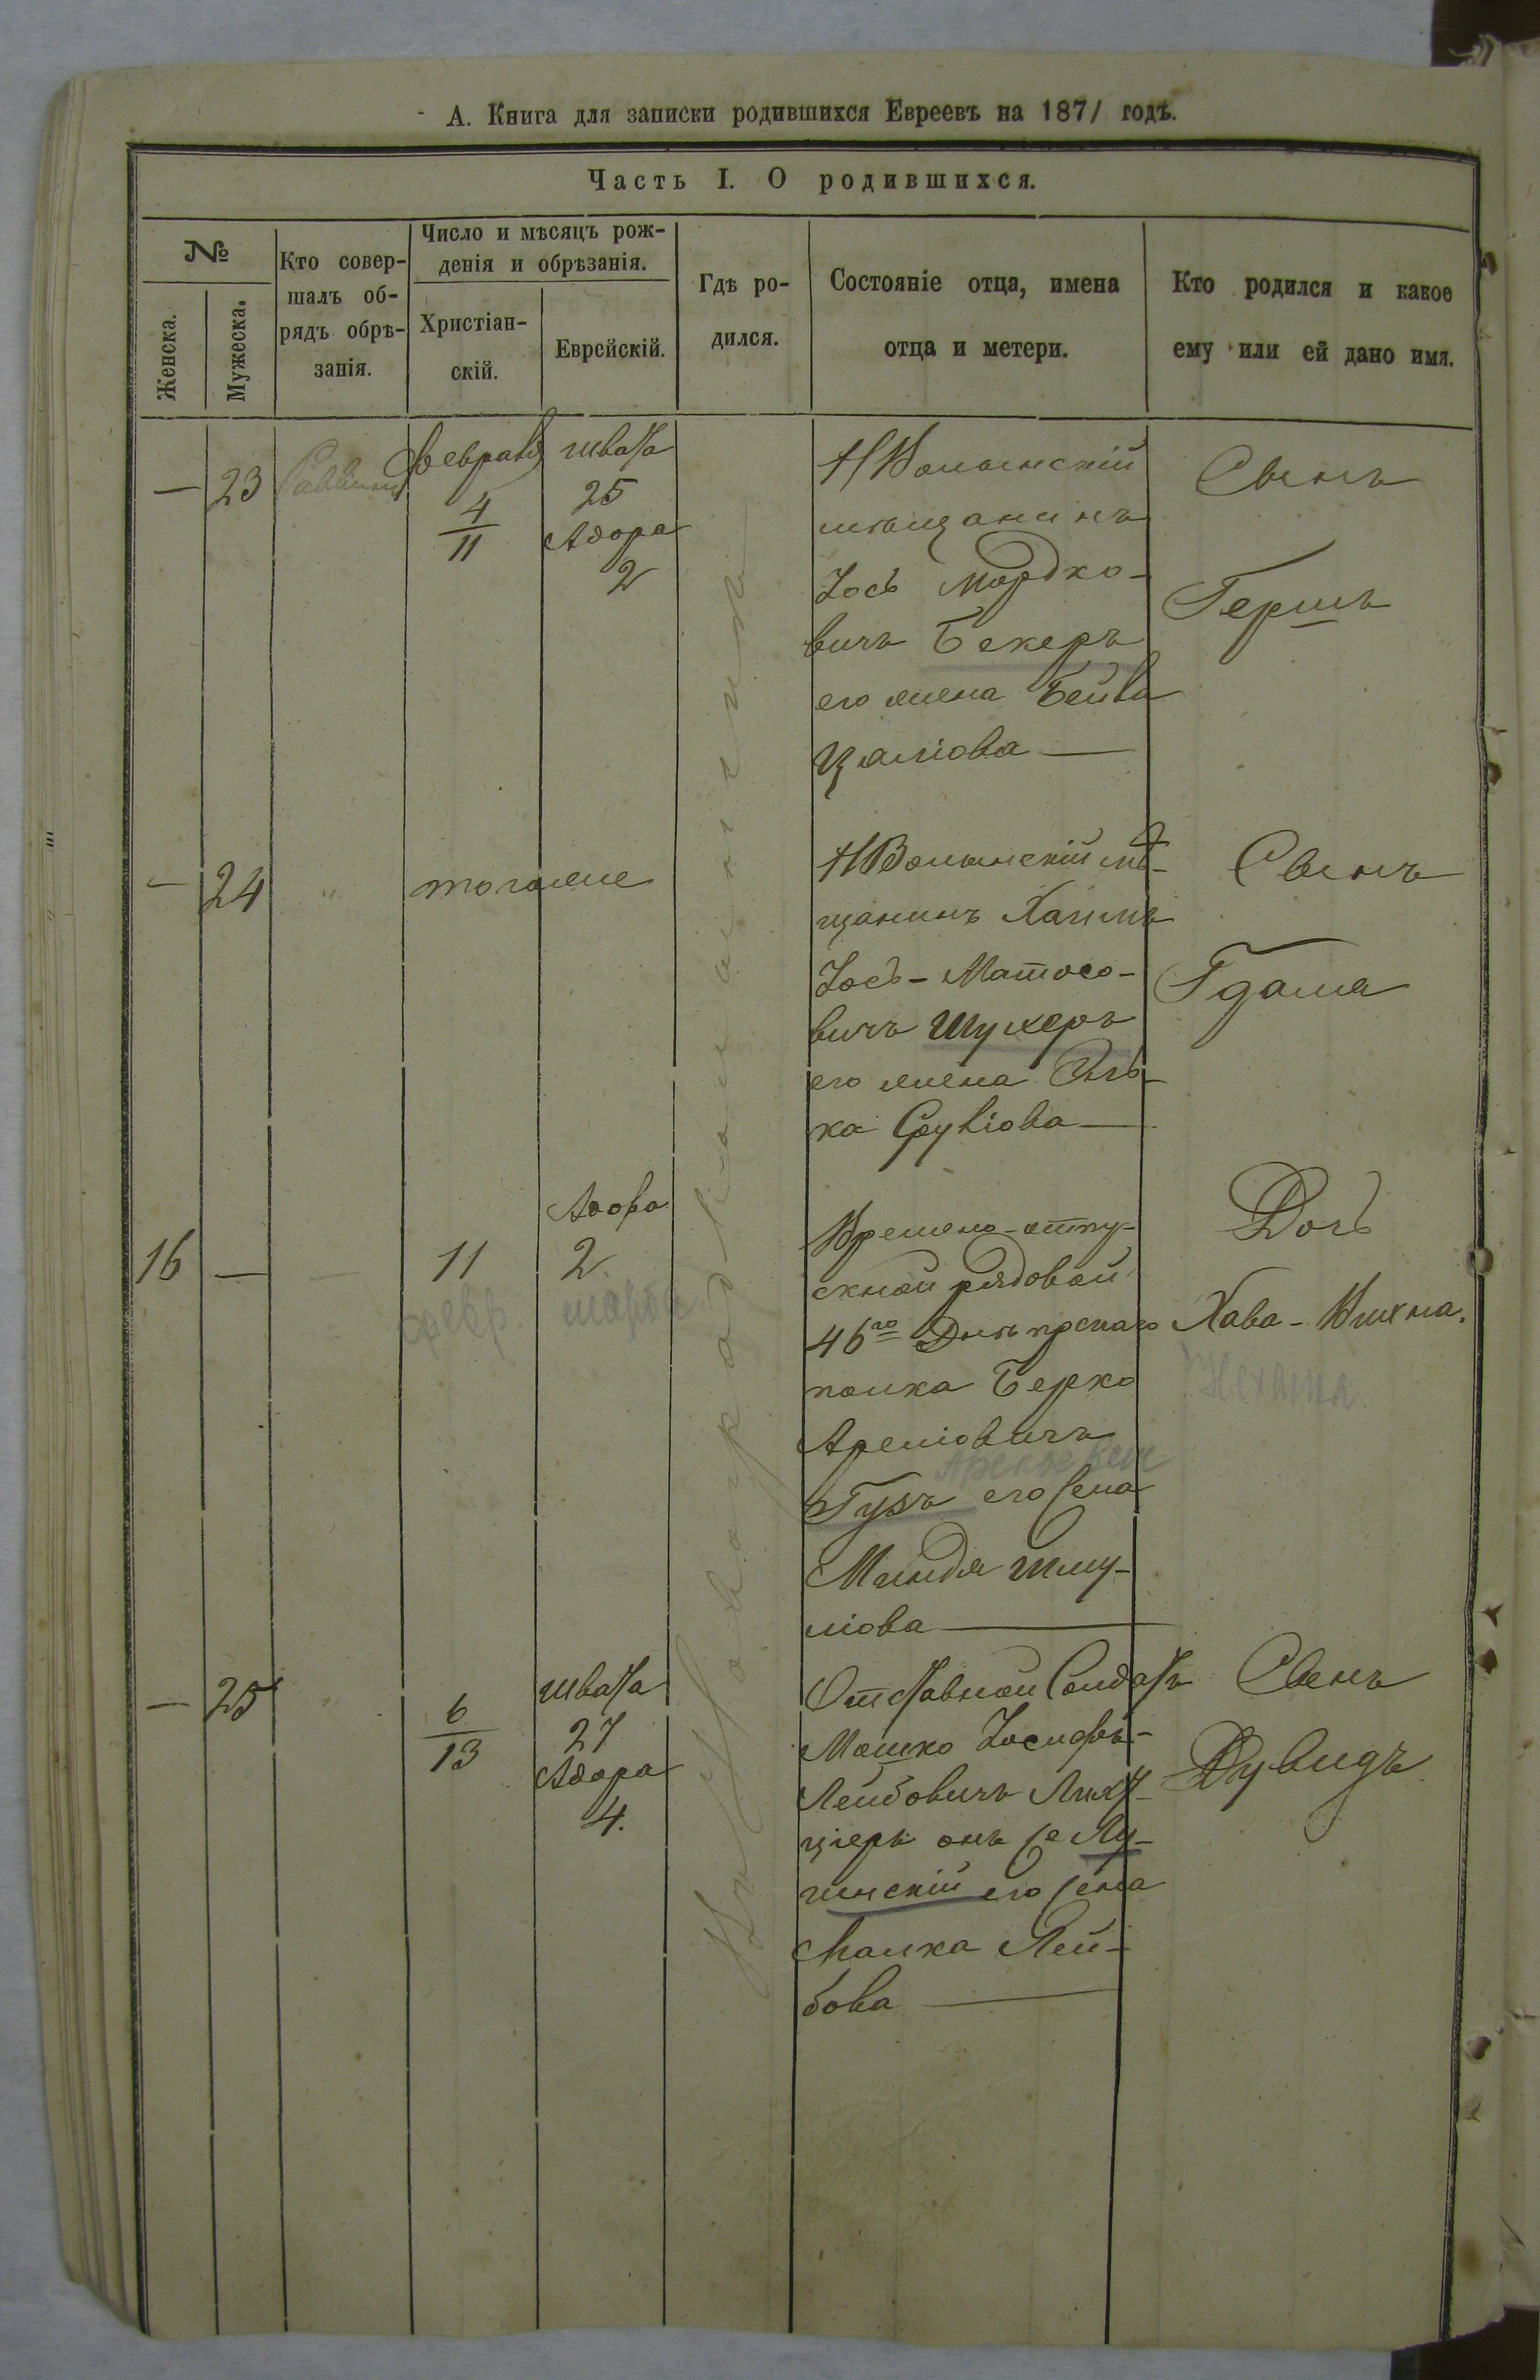 А. Книга для записки родившихся Евреевъ на 1871 годъ.
Часть I. О родившихся.
№
Женска.
Мужеска.
Кто совер-
шалъ об-
рядъ обрѣ-
занія.
Число и мѣсяцъ рож-
денія и обрѣзанія.
Христіан-
скій.
Еврейскій.
Гдѣ ро-
дился.
Состояніе отца, имена
отца и метери.
Кто родился и какое
ему или ей дано имя.
— 23 Раввинъ
февраля
4
11
швата
25
Адора
2
НВолынскій
мѣщанинъ
Іось Мордко-
вичъ Бекеръ
его жена Бейла
Сынъ
Гершъ
— 24 "
тогоже
НВолынскій мѣ-
щанинъ Хаимъ
Іось-Матосо-
вичъ Шухеръ
его жена
ка Срулiова —
Сынъ
Гдаля
16 — —
11
февр
Адора
2
марта
Времено-отпу-
скной рядовой
46го Днѣпрскаго
полка Берко
Арешовичъ
Гузъ его жена
Миндя Шму-
лiова —
Дочь
Хава-
Нехама
— 25 "
6
13
швата
27
Адора
4.
Отставной Солдатъ
Мошко Іосифъ-
Лейбовичъ
онъ же Лу-
гинскій его жена
Малка Лей-
бова —
Сынъ
Дувидъ